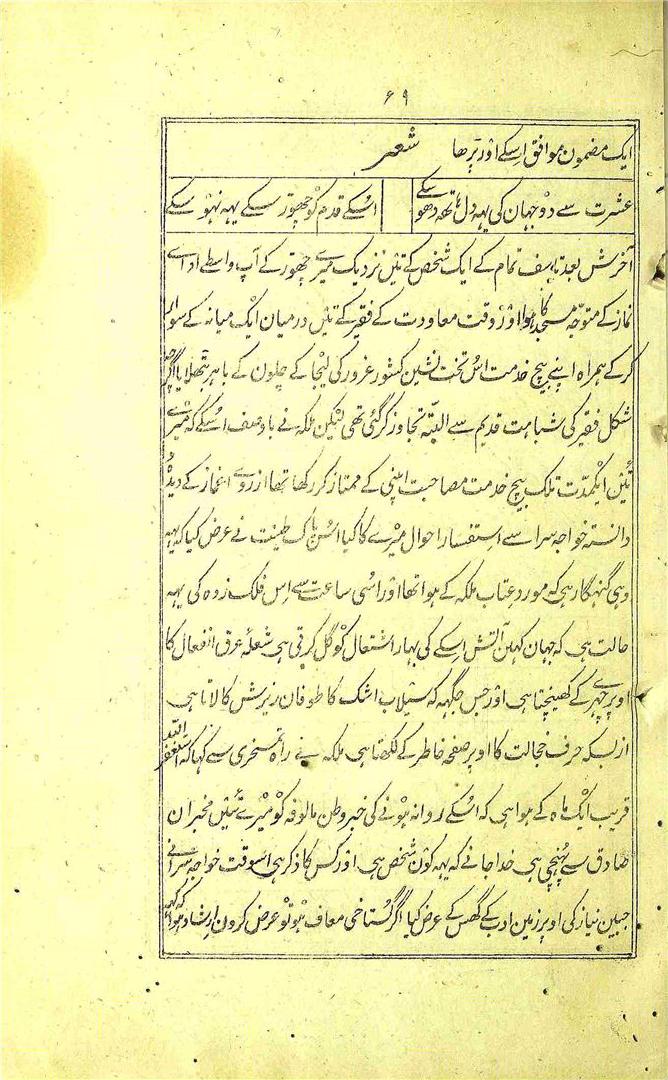 ۶۹
ایک مضمون موافق اسکے اور پڑھا شعر
عشرت سے دو جہان کی یہہ دل ہاتھہ دھو سکے اُسکے قدم کو چھوڑ سکے یہہ نہو سکے
آخرش بعد تاسف تمام کے ایک شخص کے تئیں نزدیک میرے چھوڑ کے آپ واسطے ادائے
نماز کے متوجّہ مسجد کا ہوا اور وقت معاودت کے فقیر کے تئیں درمیان ایک میانہ کے سوار
کر کے ہمراہ اپنے بیچ خدمت اُس تخت نشین کشور غرور کی لیجا کے چلون کے باہر بٹھلایا اگرچہ
شکل فقیر کی شباہت قدیم سے البتّہ تجاوز کر گئی تھی لیکن ملکہ نے باوصف اُسکے کہ میرے
تُئیں ایکمدّت تلک بیچ خدمت مصاحبت اپنی کے ممتاز کر رکھا تھا از روے اغماز کے دیدہ و
دانستہ خواجہ سرا سے استفسار احوال میرے کا کیا اُس پاک طینت نے عرض کیا کہ یہہ
وہی گنہگار ہی کہ مورد عتاب ملکہ کے ہوا تھا اور اُسی ساعت سے اِس فلک زدہ کی یہہ
حالت ہی کہ جہان کہین آتش اِسکے کی بہار اشتعال کو گل کرتی ہی شعلۂ عرق انفعال کا
اوپر چہرے کے کھینچتا ہی اور جس جگہہ کہ سیلاب اشک کا طوفان ریزش کا لاتا ہی
ازبسکہ حرف خجالت کا اوپر صفحہ خاطر کے لکھتا ہی ملکہ نے راہ تمسخری سے کہا کہ استغفر اللہ
قریب ایک ماہ کے ہوا ہی کہ اُسکے روانہ ہونے کی خبر وطن مالوفہ کو میرے تئیں مخبران
صادق سے پُہنچی ہی خدا جانے کہ یہہ کون شخص ہی اور کس کا ذکر ہی اسوقت خواجہ سرا نے
جبین نیاز کی اوپر زمین ادب کے گھس کے عرض کیا اگر گستاخی معاف ہو تو عرض کرون ارشاد ہوا کہ کہہ